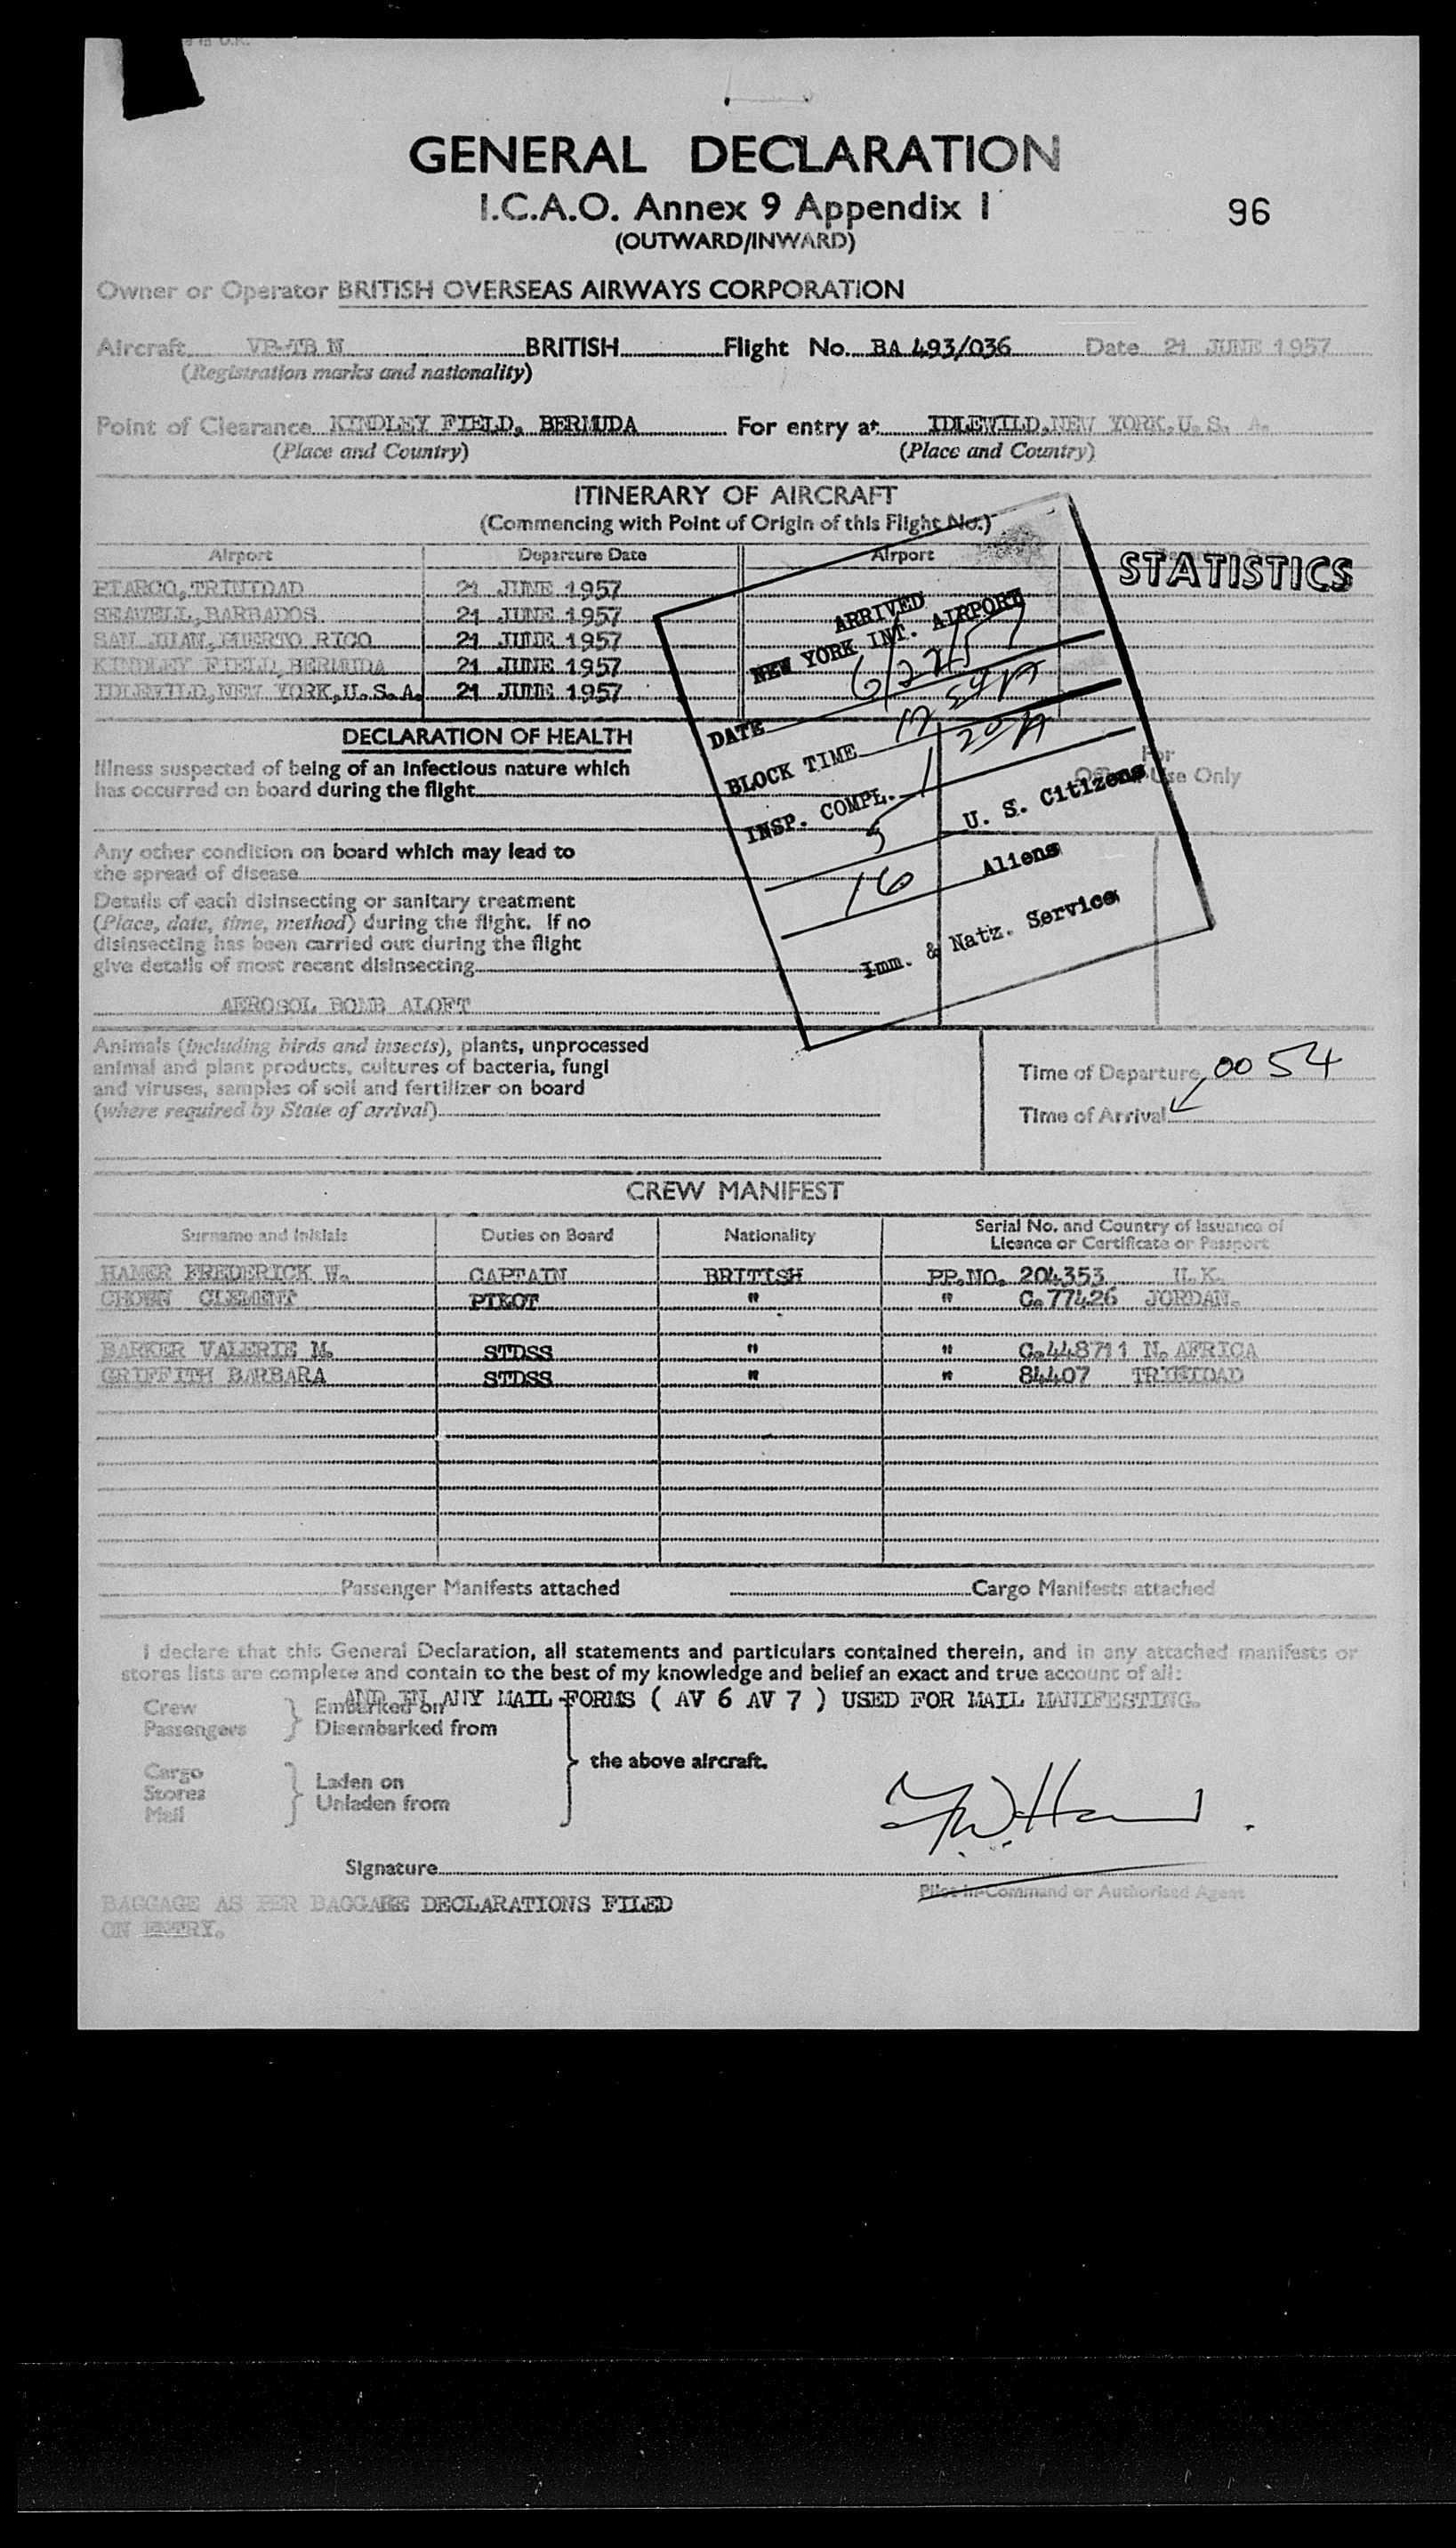 GENERAL DECLARATION
I.C.A.O. Annex 9 Appendix I
96
(OUTWARD/INWARD)
Owner or Operator BRITISH OVERSEAS AIRWAYS CORPORATION
Aircraft VP-TB N BRITISH Flight No. BA 493/036 Date 21 JUNE 1957
(Registration marks and nationality)
Point of Clearance KINDLEY FIELD, BERMUDA For entry at IDLEWILD, NEW YORK, U. S. A.
(Place and Country) (Place and Country)
ITINERARY OF AIRCRAFT
(Commencing with Point of Origin of this Flight No.)
Airport Departure Date Airport
STATISTICS
PIARCO, TRINIDAD 21 JUNE 1957
SEAWELL, BARBADOS 21 JUNE 1957
SAN JUAN, PUERTO RICO 21 JUNE 1957
KINDLEY FIELD, BERMUDA 21 JUNE 1957
IDLEWILD, NEW YORK, U.S.A. 21 JUNE 1957
ARRIVED
NEW YORK INT. AIRPORT
DATE 6/22/57
BLOCK TIME 12 54 A
INSP. COMPL. 1 20 A
5 U. S. Citizens
16 Aliens
Imm. & Natz. Service
DECLARATION OF HEALTH
For
Use Only
Illness suspected of being of an infectious nature which
has occurred on board during the flight
Any other condition on board which may lead to
the spread of disease
Details of each disinsecting or sanitary treatment
(Place, date, time, method) during the flight. If no
disinsecting has been carried out during the flight
give details of most recent disinsecting
AEROSOL BOMB ALOFT
Animals (including birds and insects), plants, unprocessed
animal and plant products, cultures of bacteria, fungi
and viruses, samples of soil and fertilizer on board
(where required by State of arrival)
Time of Departure 00 54
Time of Arrival
CREW MANIFEST
Surname and Initials Duties on Board Nationality Serial No. and Country of Issuance of
Licence or Certificate or Passport
HAMER FREDERICK W. CAPTAIN BRITISH PP.NO. 204353 U.K.
CHOWN CLEMENT " " C.77426 JORDAN.
BARKER VALERIE M. STDSS " " C.448711 N. AFRICA
GRIFFITH BARBARA STDSS " " 84407 TRINIDAD
Passenger Manifests attached Cargo Manifests attached
I declare that this General Declaration, all statements and particulars contained therein, and in any attached manifests or
stores lists are complete and contain to the best of my knowledge and belief an exact and true account of all:
AND IN ANY MAIL FORMS ( AV 6 AV 7 ) USED FOR MAIL MANIFESTING.
Crew } Embarked on
Passengers } Disembarked from
the above aircraft.
Cargo } Laden on
Stores
Mail } Unladen from
Signature
Pilot-in-Command or Authorised Agent
BAGGAGE AS PER BAGGAGE DECLARATIONS FILED
ON ENTRY.